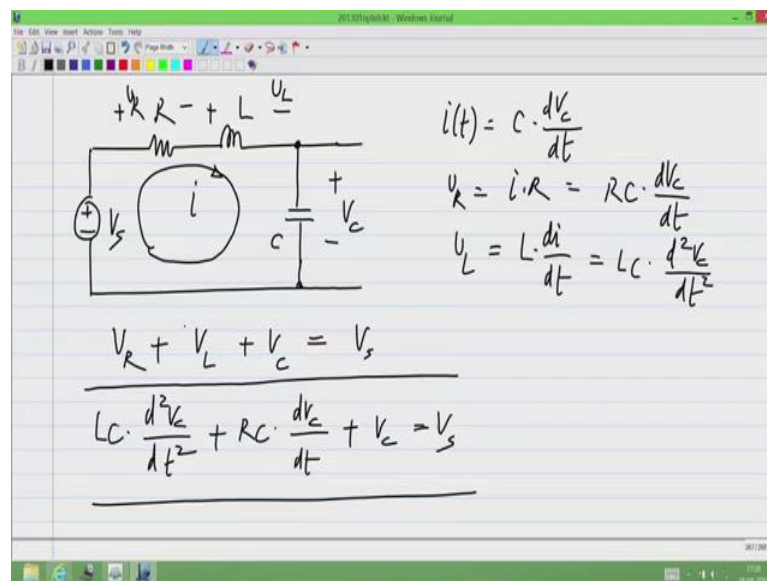 201305nptel.kt - Windows Journal
File Edit View Insert Actions Tools Help
Page Width
B I
+ υR R - + L υL -
i
+
-
Vs
C
+
Vc
-
i(t) = C · dVc/dt
υR = i·R = RC · dVc/dt
υL = L · di/dt = LC · d²Vc/dt²
VR + VL + Vc = Vs
LC · d²Vc/dt² + RC · dVc/dt + Vc = Vs